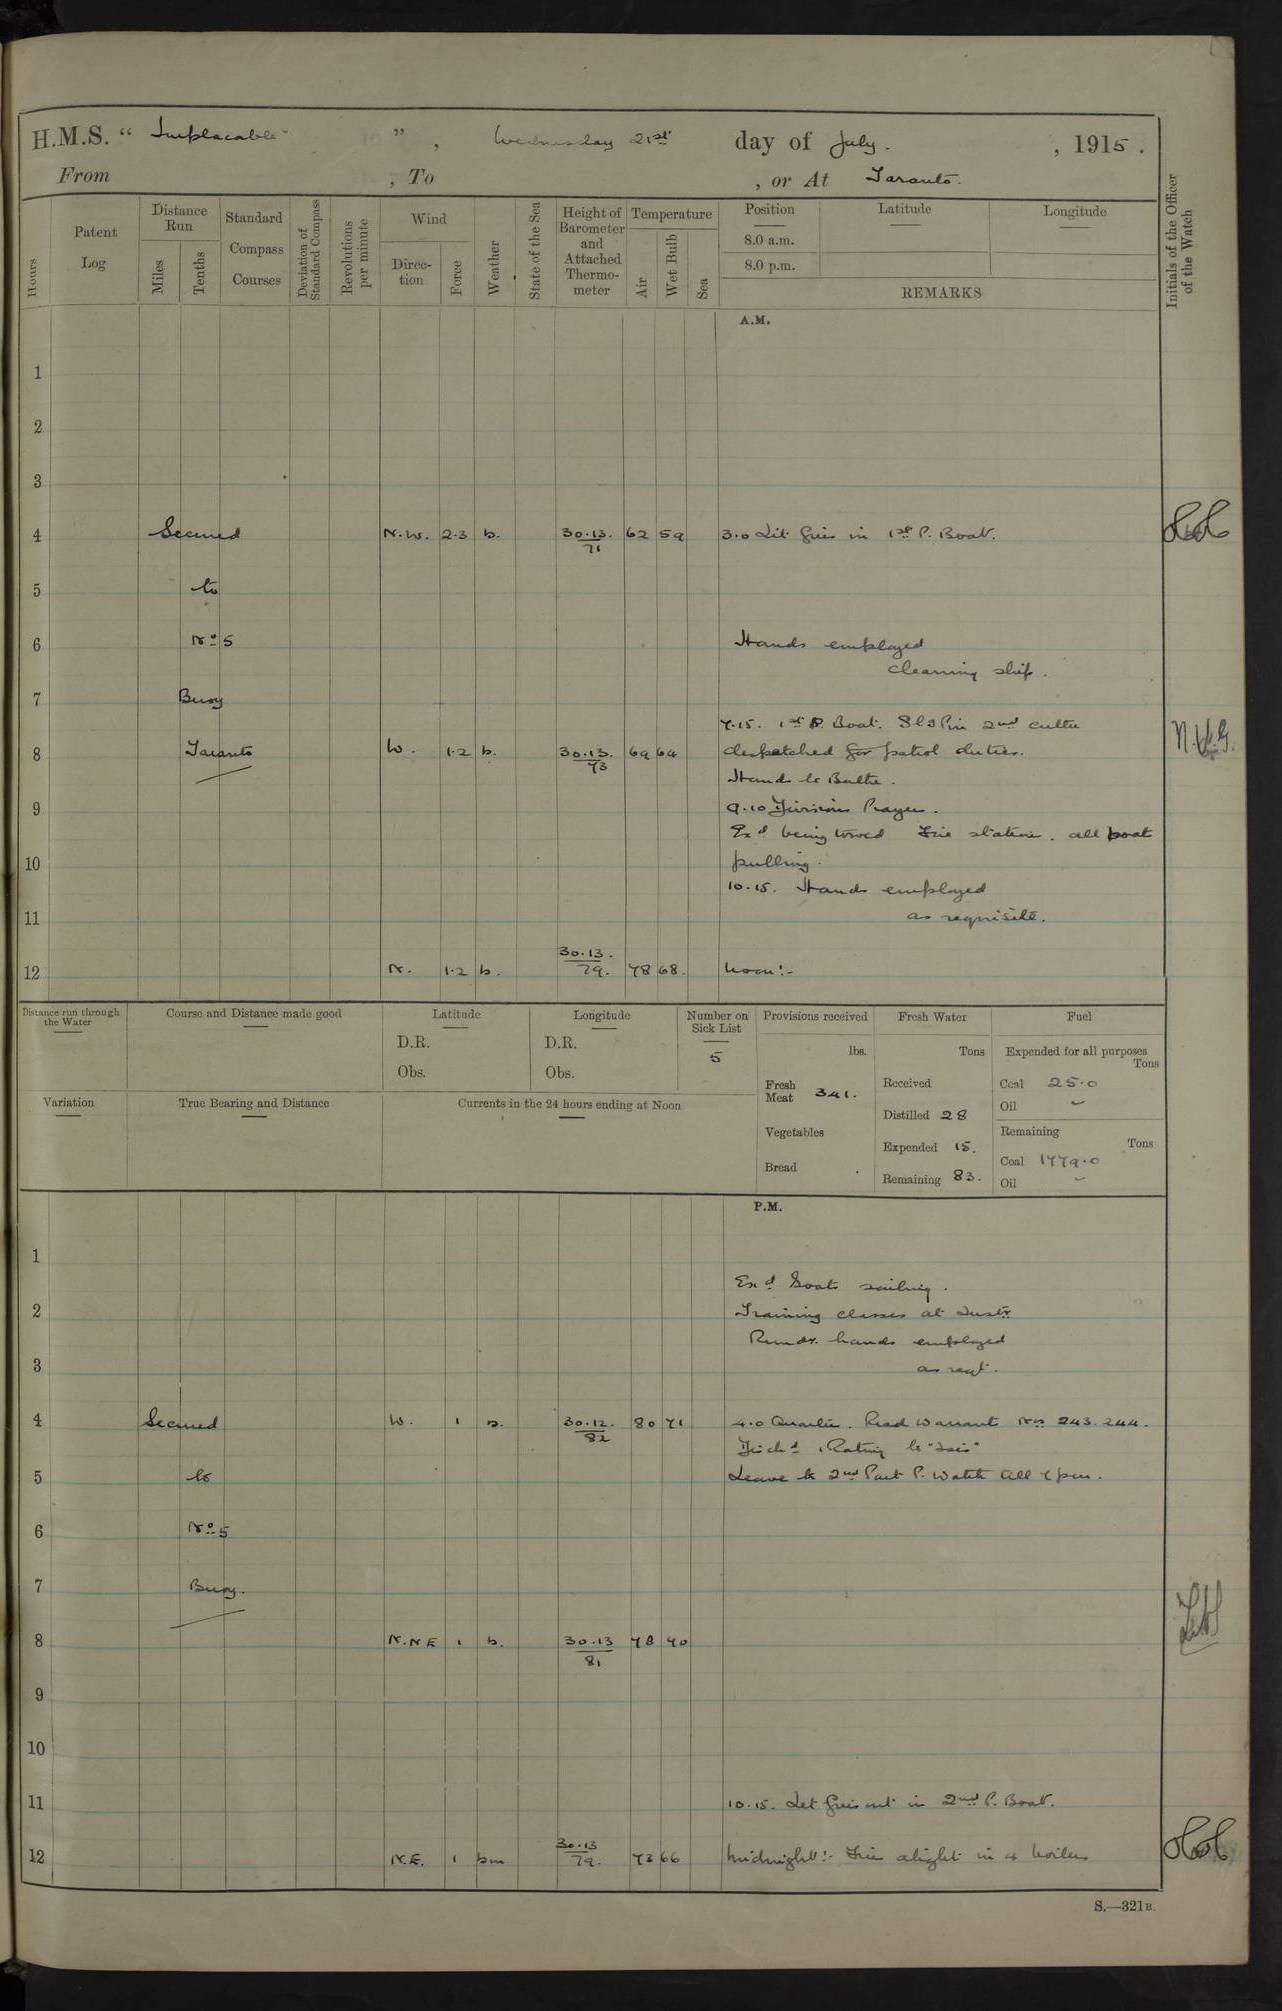 H.M.S. " Implacable ", Wednesday 21st day of July. , 1915.
From , To , or At Taranto.
Hours
Patent Log
Distance Run
Miles
Tenths
Standard Compass Courses
Deviation of Standard Compass
Revolutions per minute
Wind
Direction
Force
Weather
State of the Sea
Height of Barometer and Attached Thermometer
Temperature
Air
Wet Bulb
Sea
Position
8.0 a.m.
8.0 p.m.
Latitude
Longitude
REMARKS
Initials of the Officer of the Watch
A.M.
1
2
3
4 Secured N.W. 2.3 b. 30.13. 71 62 59 3.0 Lit fires in 1st P. Boat.
5 to
6 No 5 Hands employed
cleaning ship.
7 Buoy
7.15. 1st P. Boat. 2nd cutter
8 Taranto W. 1.2 b. 30.13. 73 69 64 despatched for patrol duties.
Hands to Bathe.
9 9.10 Divisions Prayers.
Exd being towed Fire stations. all boats
10 pulling.
10.15. Hands employed
11 as requisite.
12 N. 1.2 b. 30.13. 79. 78 68. Noon:-
N.
Distance run through the Water
Course and Distance made good
Latitude
D.R.
Obs.
Longitude
D.R.
Obs.
Number on Sick List
5
Provisions received
lbs.
Fresh Meat 341.
Vegetables
Bread
Fresh Water
Tons
Received
Distilled 28
Expended 15.
Remaining 83.
Fuel
Expended for all purposes
Tons
Coal 25.0
Oil -
Remaining
Tons
Coal 1779.0
Oil -
Variation
True Bearing and Distance
Currents in the 24 hours ending at Noon
P.M.
1
Exd Boats sailing.
2 Training classes at Instn
Remdr. hands employed
3 as reqt.
4 Secured W. 1 b. 30.12. 82 80 71 4.0 Quarters. Read Warrants Nos 243. 244.
Dischd 1 Rating to "Isis"
5 to Leave to 2nd Part P. Watch till 7 pm.
6 No 5
7 Buoy.
8 N.NE 1 b. 30.13 81 78 70
9
10
11 10.15. Let fires out in 2nd P. Boat.
12 N.E. 1 bm 30.13 79. 73 66 Midnight:- Fires alight in 4 boilers
S.—321B.